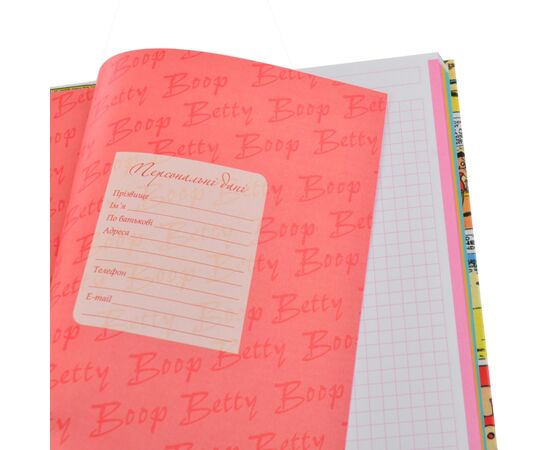 Betty Boop
Betty Boop Betty
Boop Betty Boop Betty
Персональні дані
Прізвище
Ім'я
По батькові
Адреса
Телефон
E-mail
Boop
Boop Betty
Boop Betty
Betty Boop Betty
Betty Boop Betty Boop
Boop Betty